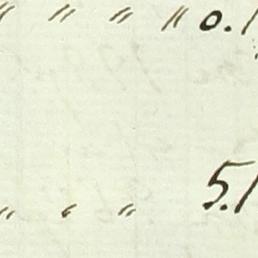 " " " " 0.1
" " " 5.1